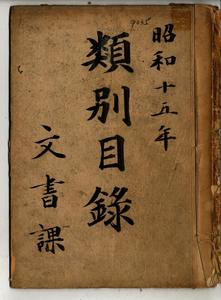 昭和十五年
類別目錄
文書課